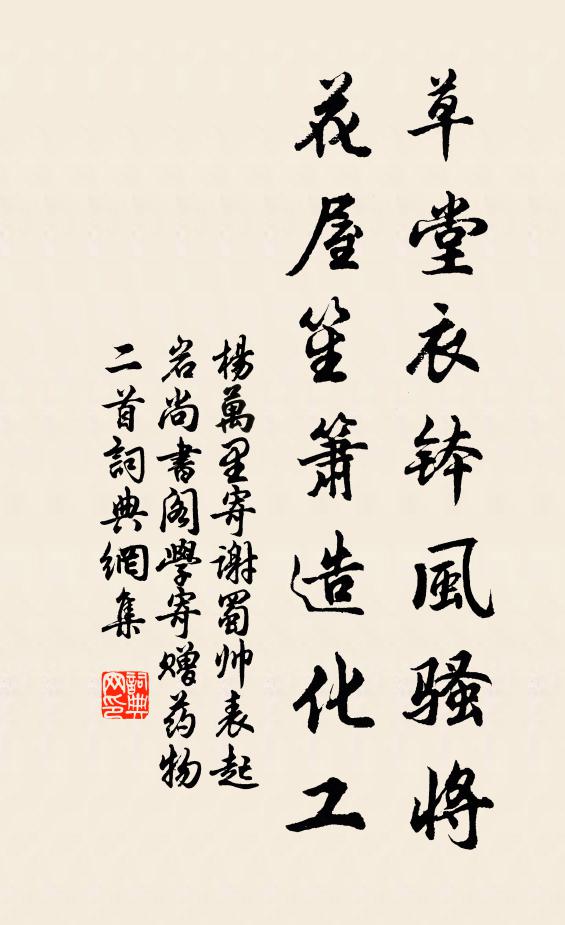 草堂衣钵風騷將
花屋笙簫造化工
楊萬里寄謝蜀帅袁起
岩尚書阁學寄赠药物
二首詞典網集
詞典网印